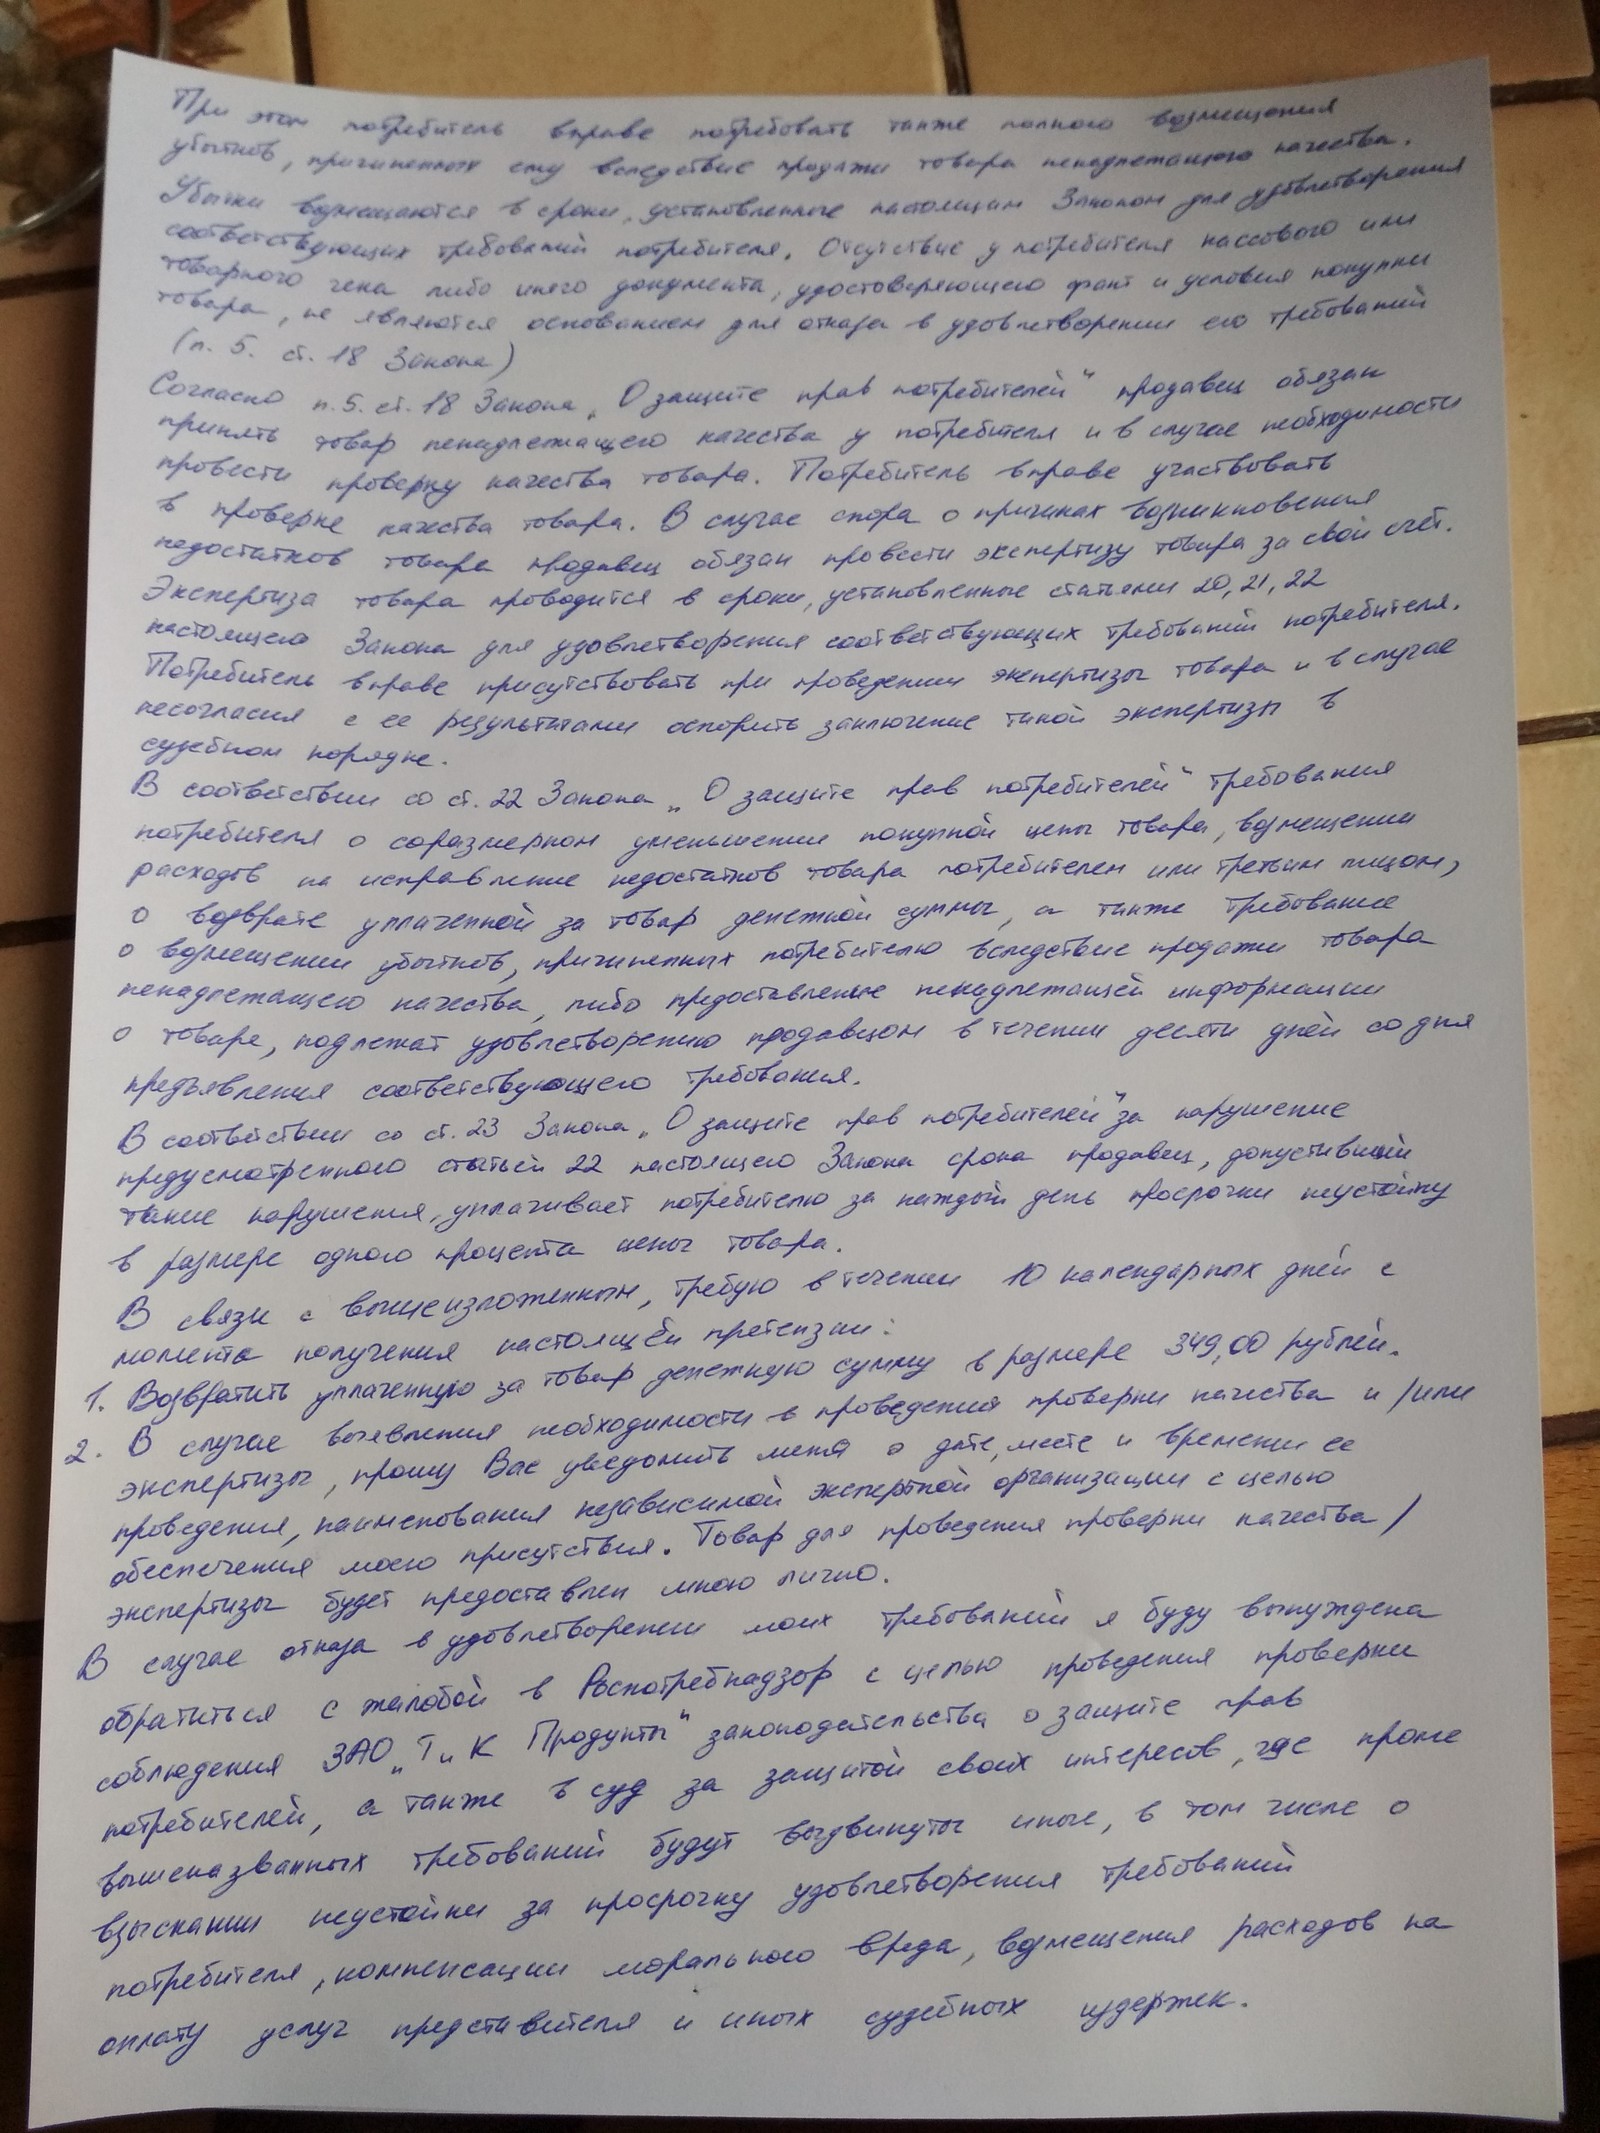 При этом потребитель вправе потребовать также полного возмещения
убытков, причиненных ему вследствие продажи товара ненадлежащего качества.
Убытки возмещаются в сроки, установленные настоящим Законом для удовлетворения
соответствующих требований потребителя. Отсутствие у потребителя кассового или
товарного чека либо иного документа, удостоверяющего факт и условия покупки
товара, не являются основанием для отказа в удовлетворении его требований
(п. 5. ст. 18 Закона)
Согласно п. 5. ст. 18 Закона „О защите прав потребителей“ продавец обязан
принять товар ненадлежащего качества у потребителя и в случае необходимости
провести проверку качества товара. Потребитель вправе участвовать
в проверке качества товара. В случае спора о причинах возникновения
недостатков товара продавец обязан провести экспертизу товара за свой счёт.
Экспертиза товара проводится в сроки, установленные статьями 20, 21, 22
настоящего Закона для удовлетворения соответствующих требований потребителя.
Потребитель вправе присутствовать при проведении экспертизы товара и в случае
несогласия с ее результатами оспорить заключение такой экспертизы в
судебном порядке.
В соответствии со ст. 22 Закона „О защите прав потребителей“ требования
потребителя о соразмерном уменьшении покупной цены товара, возмещении
расходов на исправление недостатков товара потребителем или третьим лицом,
о возврате уплаченной за товар денежной суммы, а также требование
о возмещении убытков, причиненных потребителю вследствие продажи товара
ненадлежащего качества, либо предоставление ненадлежащей информации
о товаре, подлежат удовлетворению продавцом в течении десяти дней со дня
предъявления соответствующего требования.
В соответствии со ст. 23 Закона „О защите прав потребителей“ за нарушение
предусмотренного статьей 22 настоящего Закона срока продавец, допустивший
такие нарушения, уплачивает потребителю за каждый день просрочки неустойку
в размере одного процента цены товара.
В связи с вышеизложенным, требую в течении 10 календарных дней с
момента получения настоящей претензии:
1. Возвратить уплаченную за товар денежную сумму в размере 349,00 рублей.
2. В случае выявления необходимости в проведения проверки качества и/или
экспертизы, прошу Вас уведомить меня о дате, месте и времени ее
проведения, наименования независимой экспертной организации с целью
обеспечения моего присутствия. Товар для проведения проверки качества/
экспертизы будет предоставлен мною лично.
В случае отказа в удовлетворении моих требований я буду вынуждена
обратиться с жалобой в Роспотребнадзор с целью проведения проверки
соблюдения ЗАО „Т и К Продукты“ законодательства о защите прав
потребителей, а также в суд за защитой своих интересов, где кроме
вышеназванных требований будут выдвинуты иные, в том числе о
взыскании неустойки за просрочку удовлетворения требований
потребителя, компенсации морального вреда, возмещения расходов на
оплату услуг представителя и иных судебных издержек.